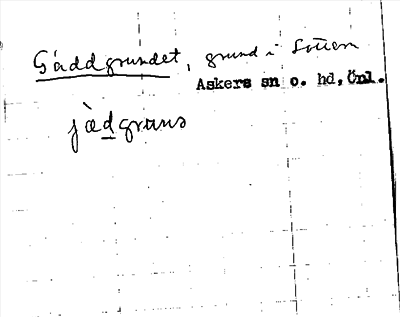 Gäddgrundet, grund i Sottern
Askers sn o. hd, Önl.
jàdgruns